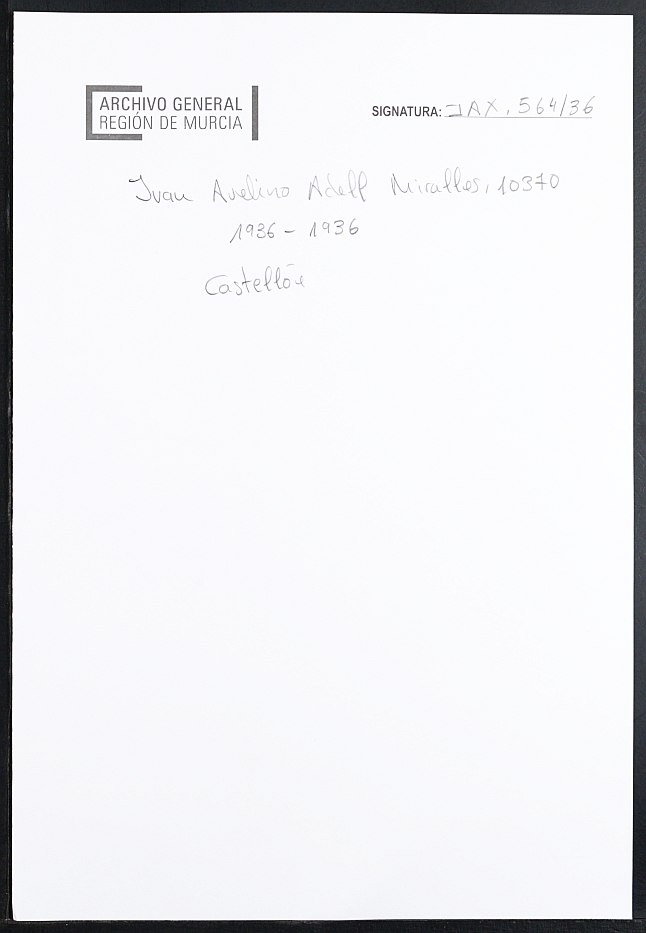 ARCHIVO GENERAL
REGIÓN DE MURCIA
SIGNATURA: JAX, 564/36
Juan Avelino Adell Miralles, 10370
1936 - 1936
Castellón